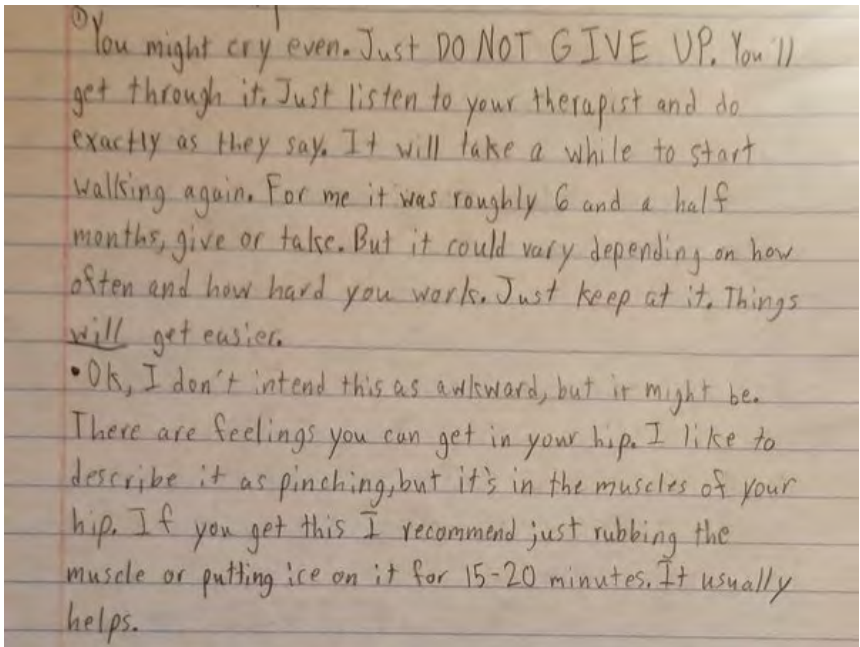 ① You might cry even. Just DO NOT GIVE UP. You'll
get through it. Just listen to your therapist and do
exactly as they say. It will take a while to start
walking again. For me it was roughly 6 and a half
months, give or take. But it could vary depending on how
often and how hard you work. Just keep at it. Things
will get easier.
• Ok, I don't intend this as awkward, but it might be.
There are feelings you can get in your hip. I like to
describe it as pinching, but it's in the muscles of your
hip. If you get this I recommend just rubbing the
muscle or putting ice on it for 15-20 minutes. It usually
helps.